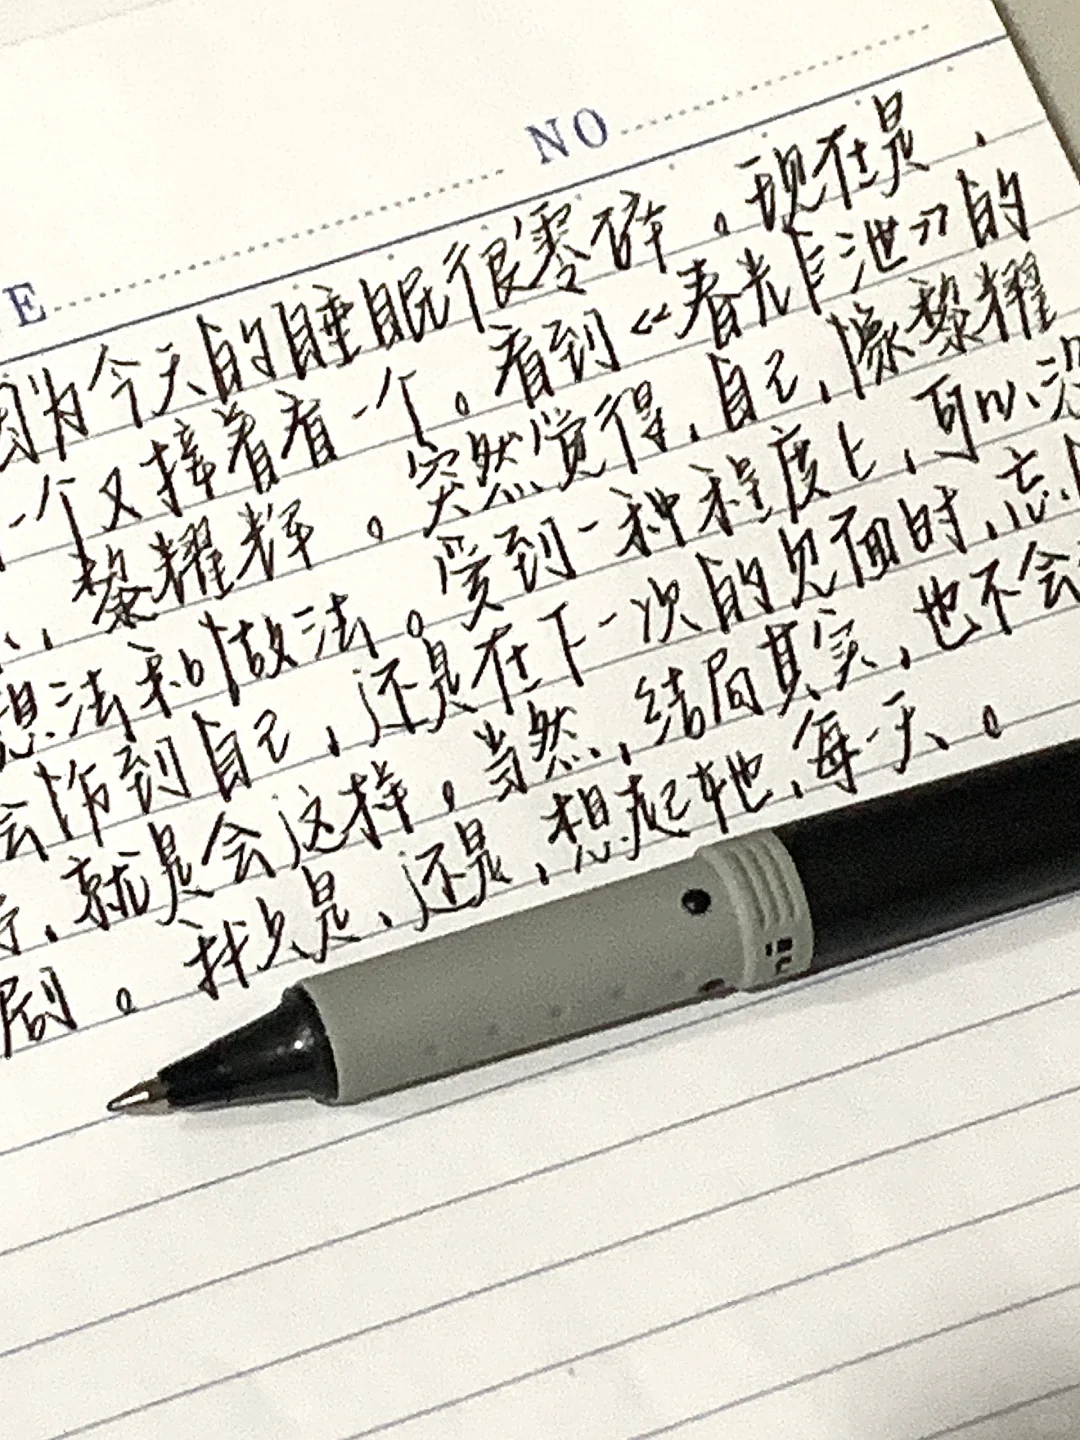 NO
E
因为今天的睡眠很零碎。现在是,
一个又接着看一个。看到《春光乍泄》的
,黎耀辉。突然觉得,自己,像黎耀
想法和做法。受到一种程度上,可以没
会伤到自己,还是在下一次的见面时,忘
,就是会这样。当然,结局其实,也不会
剧。我只是,还是,想起她,每一天。
ni